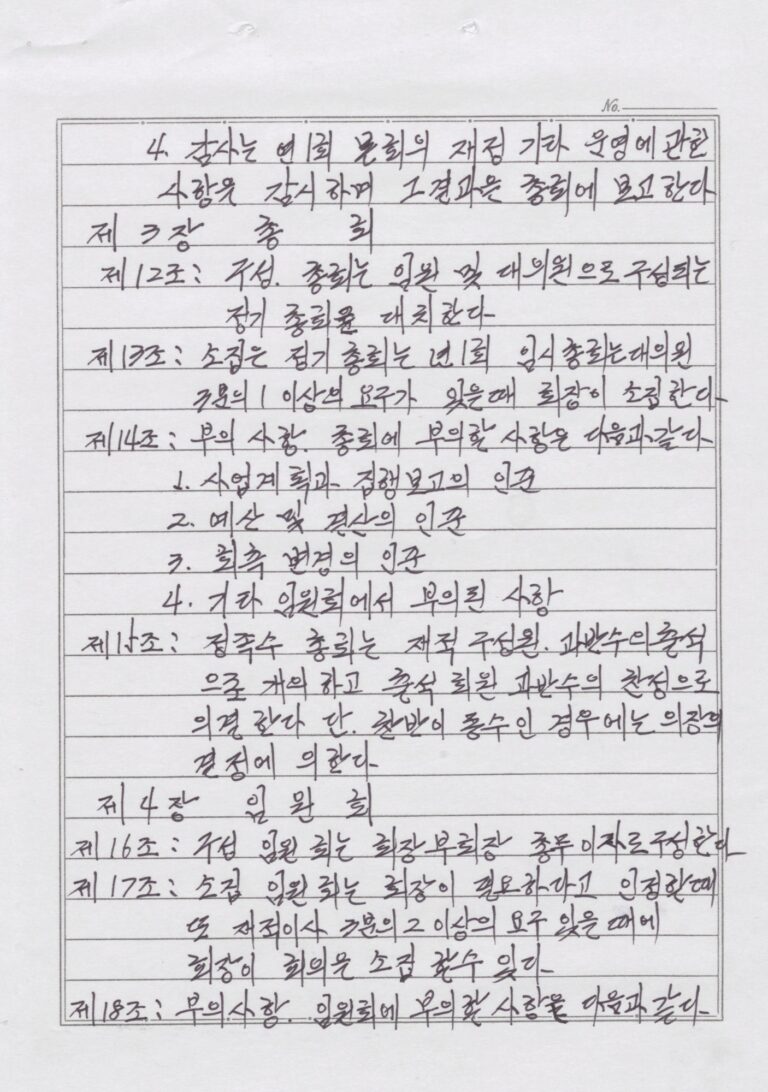 No.
4. 감사는 연1회 본회의 재정 기타 운영에 관한
사항을 감시하며 그결과은 총회에 보고한다
제 3장 총 회
제12조: 구성. 총회는 임원 및 대의원으로 구성되는
정기 총회을 대치한다
제13조: 소집은 정기총회는 년1회 임시총회는대의원
3분의 1 이상의 요구가 있을때 회장이 소집한다
제14조: 부의 사항. 총회에 부의할 사항은 다음과같다
1. 사업계획과 집행보고의 인준
2. 예산 및 결산의 인준
3. 회측 변경의 인준
4. 기타 임원회에서 부의된 사항
제15조: 정족수 총회는 재적 구성원. 과반수의출석
으로 개의 하고 출석 회원 과반수의 찬정으로
의결 한다 단. 찬반이 동수인 경우에는 의장의
결정에 의한다
제4장 임 원 회
제16조: 구성 임원회는 회장부회장 총무이사로구성한다
제17조: 소집 임원회는 회장이 필요하다고 인정할때
또 재적이사 3분의2이상의 요구 있을때에
회장이 회의을 소집 할수 있다
제18조: 부의사항. 임원회에 부의할 사항을 다음과같다